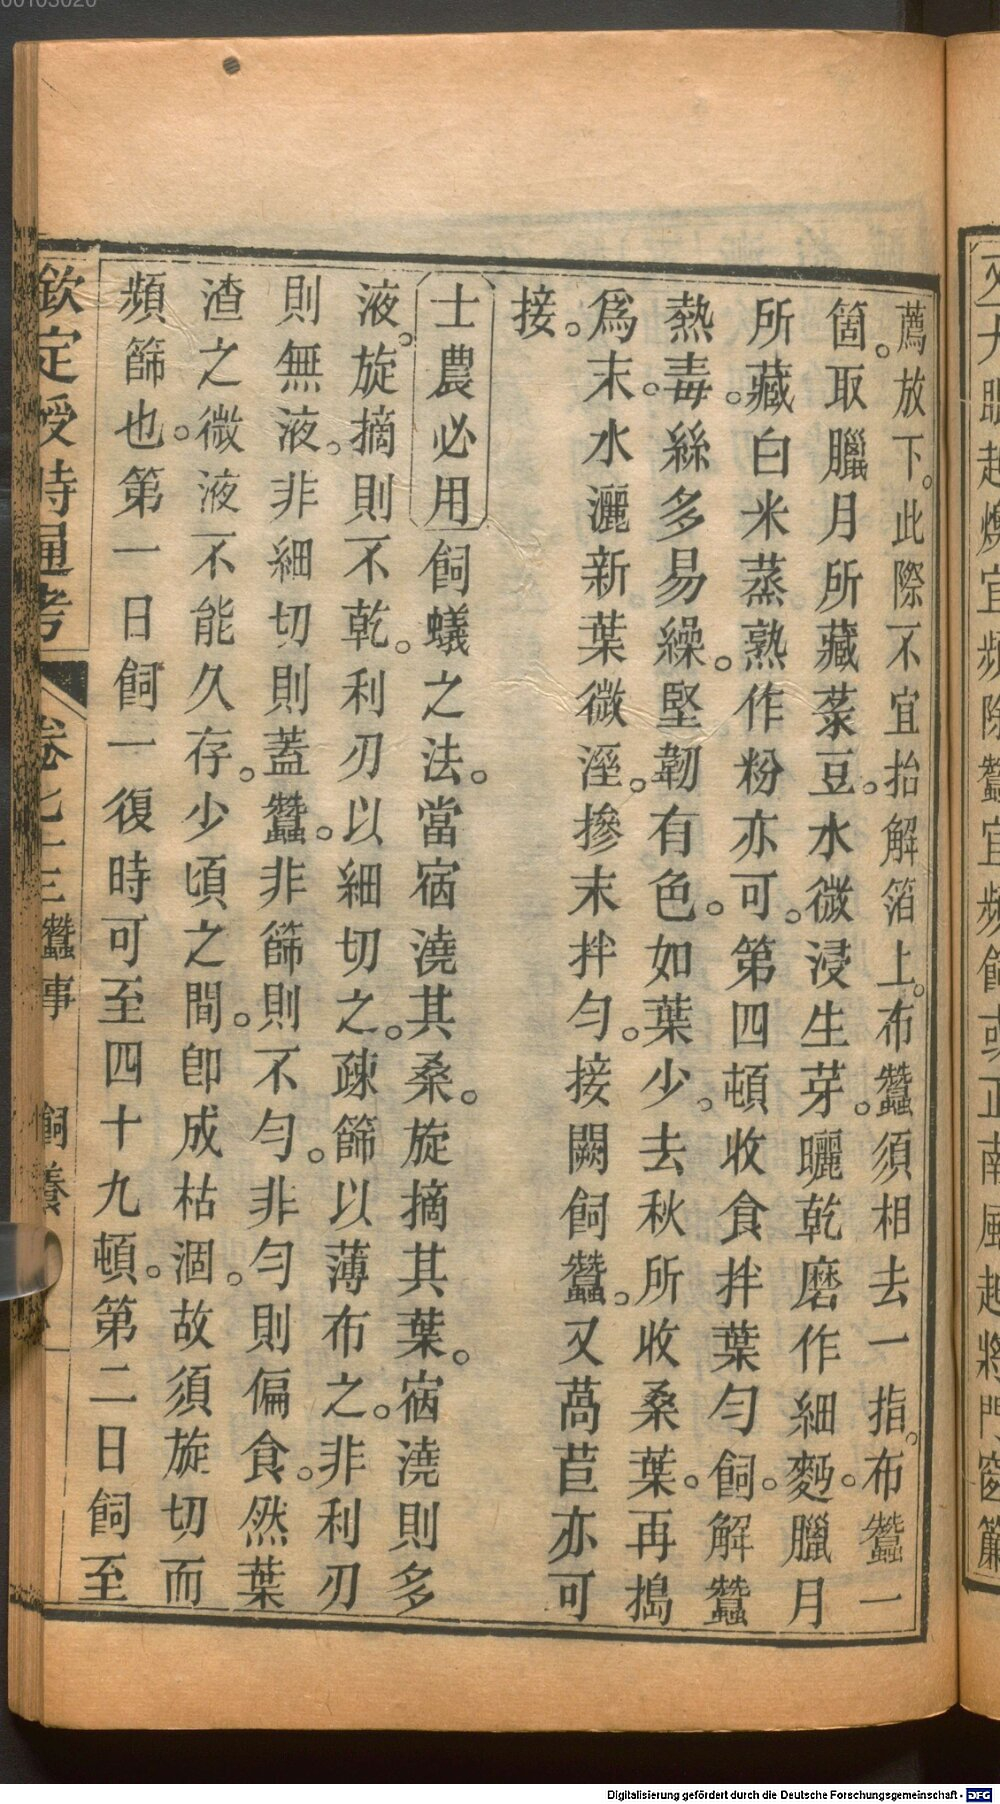 薦放下。此際不宜抬解箔上。布蠶須相去一指。布蠶一
箇。取臘月所藏菉豆。水微浸生芽。曬乾磨作細麪。臘月
所藏。白米蒸熟作粉亦可。第四頓收食拌葉勻飼。解蠶
熱毒。絲多易繰。堅韌有色。如葉少。去秋所收桑葉。再搗
爲末。水灑新葉微溼。摻末拌勻。接闕飼蠶。又萵苣亦可
接。
士農必用 飼蟻之法。當宿澆其桑。旋摘其葉。宿澆則多
液。旋摘則不乾。利刃以細切之。疎篩以薄布之。非利刃
則無液。非細切則蓋蠶。非篩則不勻。非勻則偏食。然葉
渣之微液不能久存。少頃之間。卽成枯涸。故須旋切而
頻篩也。第一日飼一復時可至四十九頓。第二日飼至
欽定授時通考 卷七十三 蠶事 飼養
Digitalisierung gefördert durch die Deutsche Forschungsgemeinschaft - DFG